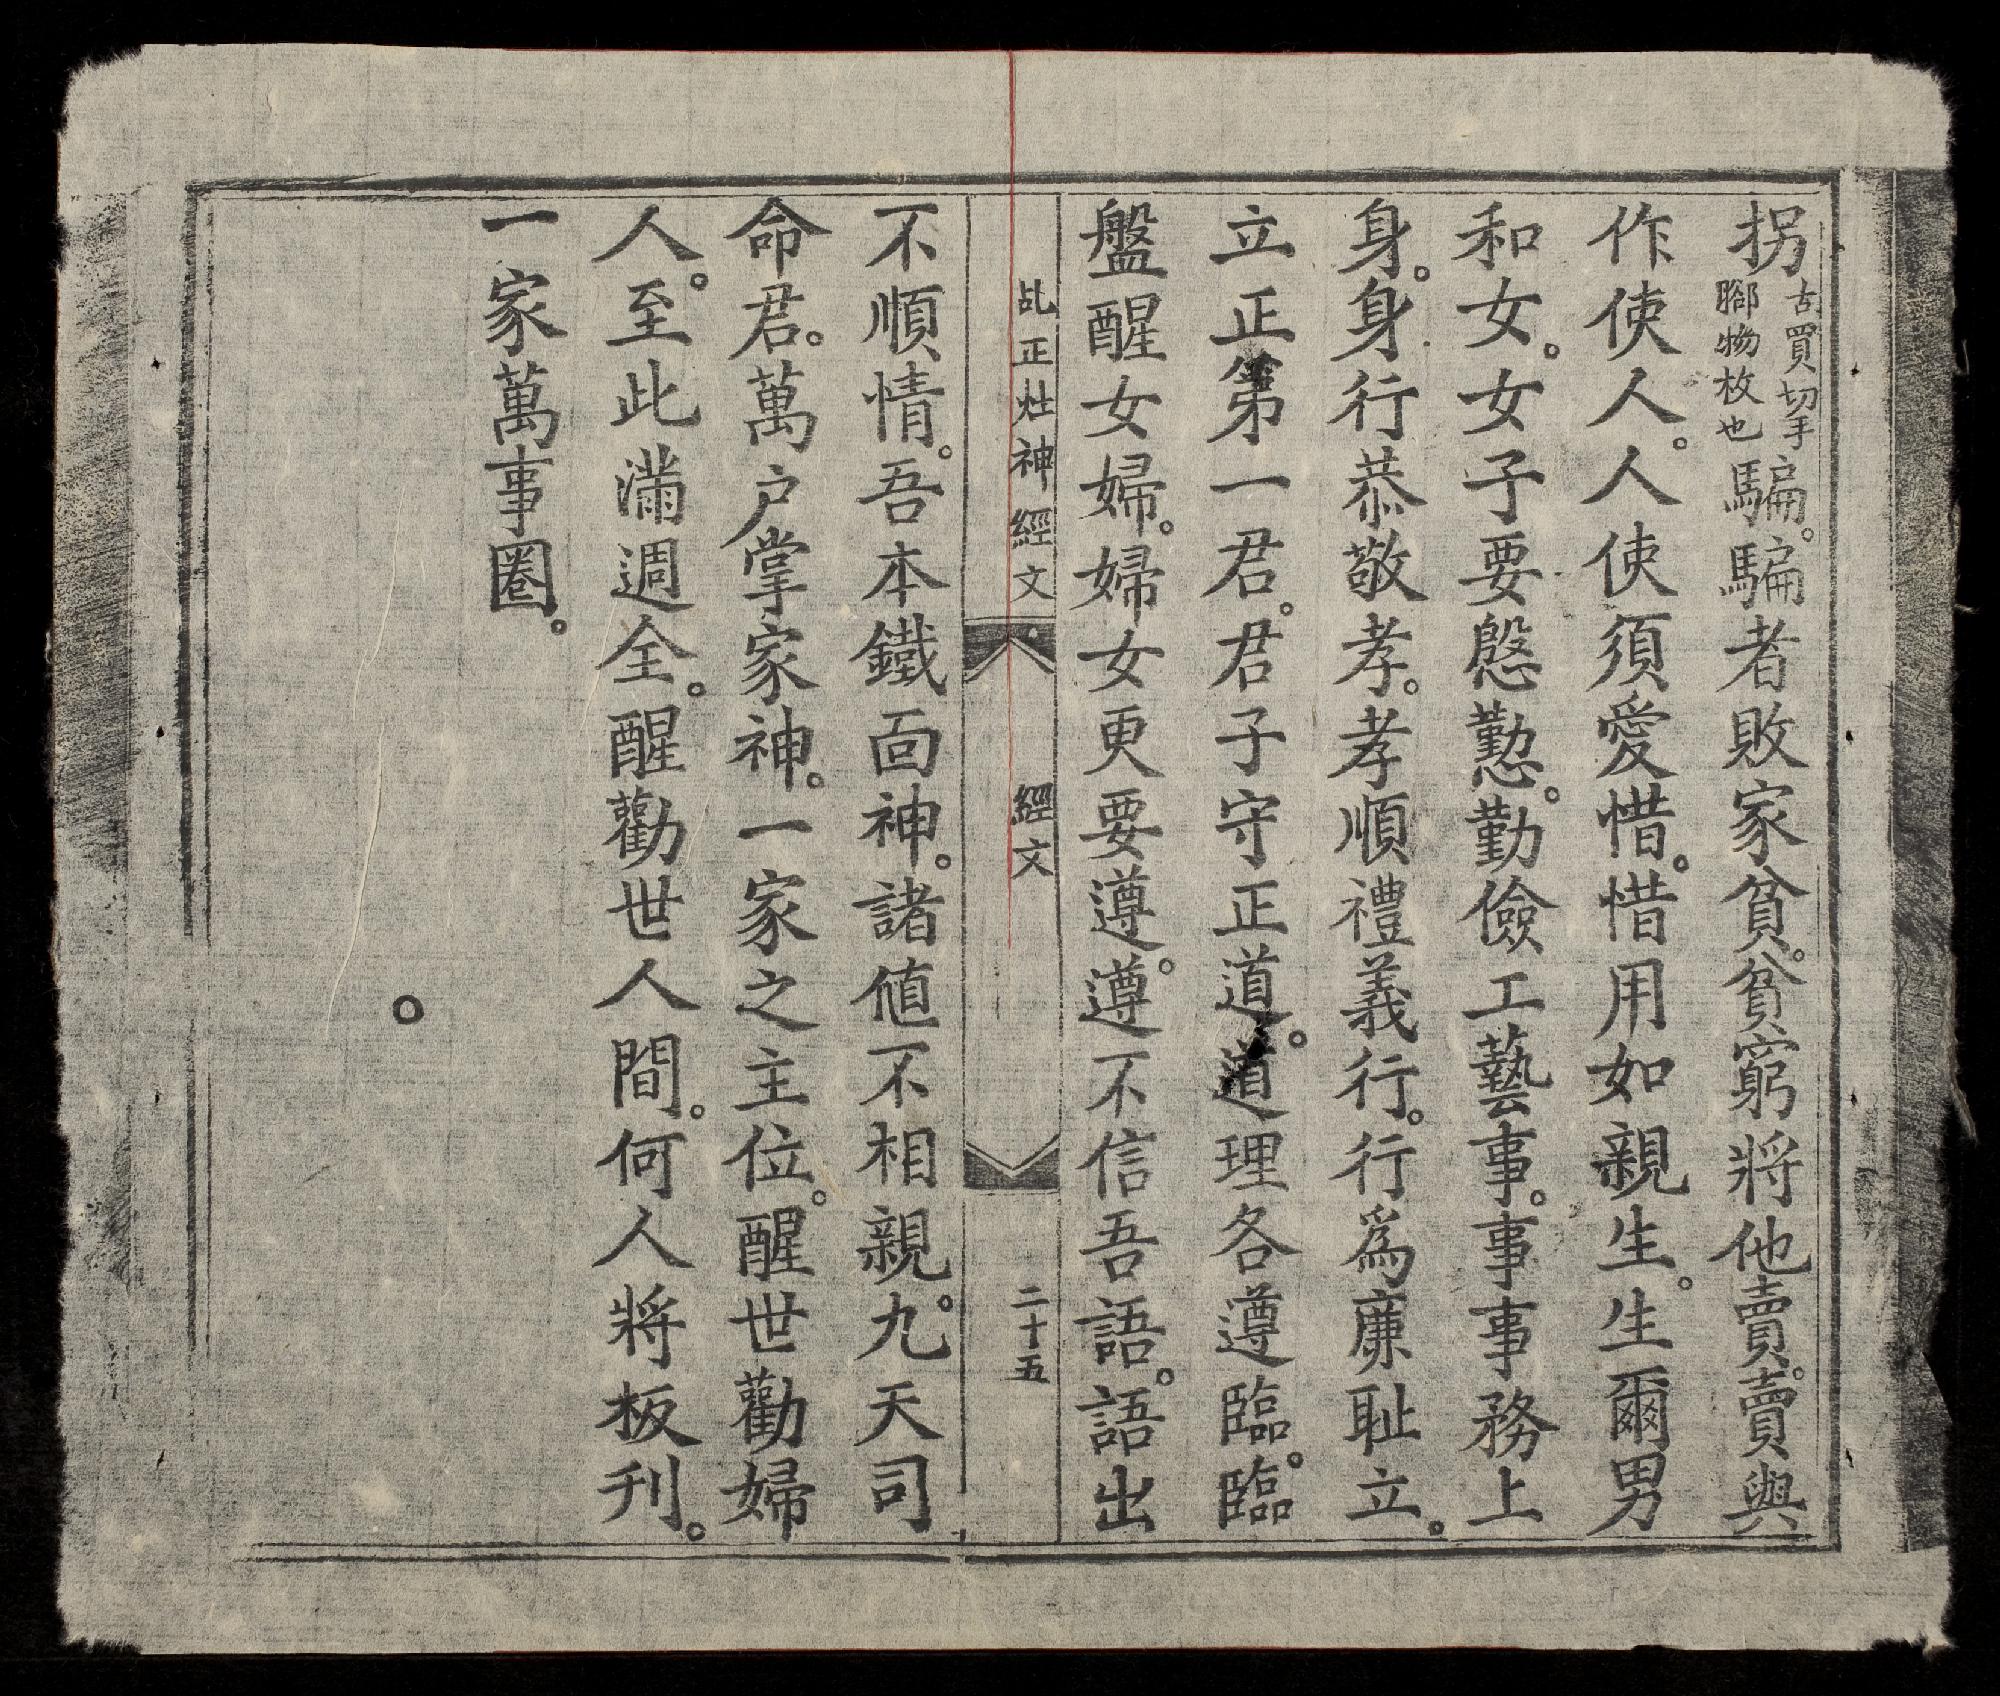 拐古買切手腳物枚也騙。騙者敗家貧。貧窮將他賣。賣與
作使人。人使須愛惜。惜用如親生。生爾男
和女。女子要慇懃。勤儉工藝事。事事務上
身。身行恭敬孝。孝順禮義行。行爲廉耻立。
立正第一君。君子守正道。道理各遵臨。臨
盤醒女婦。婦女更要遵。遵不信吾語。語出
乩正灶神經文 經文 二十五
不順情。吾本鐵面神。諸値不相親。九天司
命君。萬户掌家神。一家之主位。醒世勸婦
人。至此滿週全。醒勸世人間。何人將板刋。
一家萬事圈。